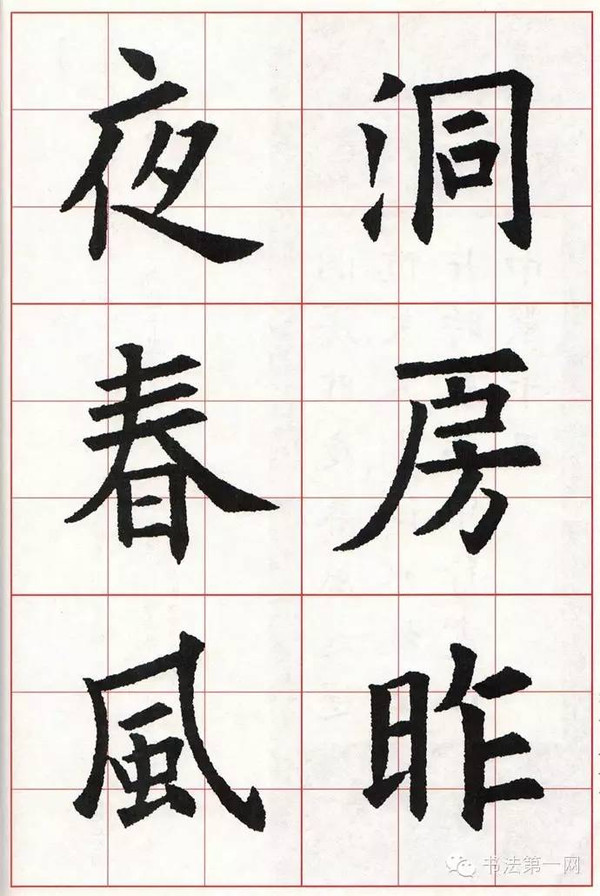 洞房昨
夜春風
书法第一网